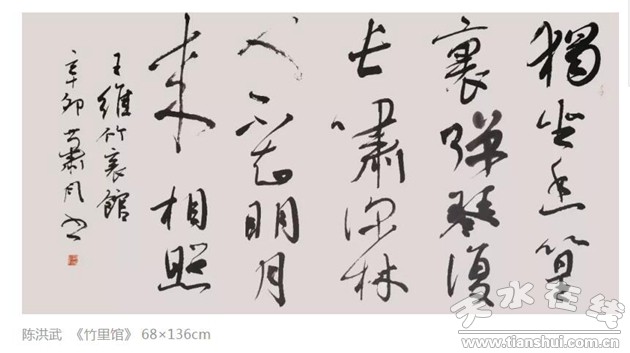 獨坐幽篁
裏彈琴復
长嘯深林
人不知明月
来相照
王維竹裏館
辛卯
陈洪武 《竹里馆》 68×136cm
天水在线
www.tianshui.com.cn